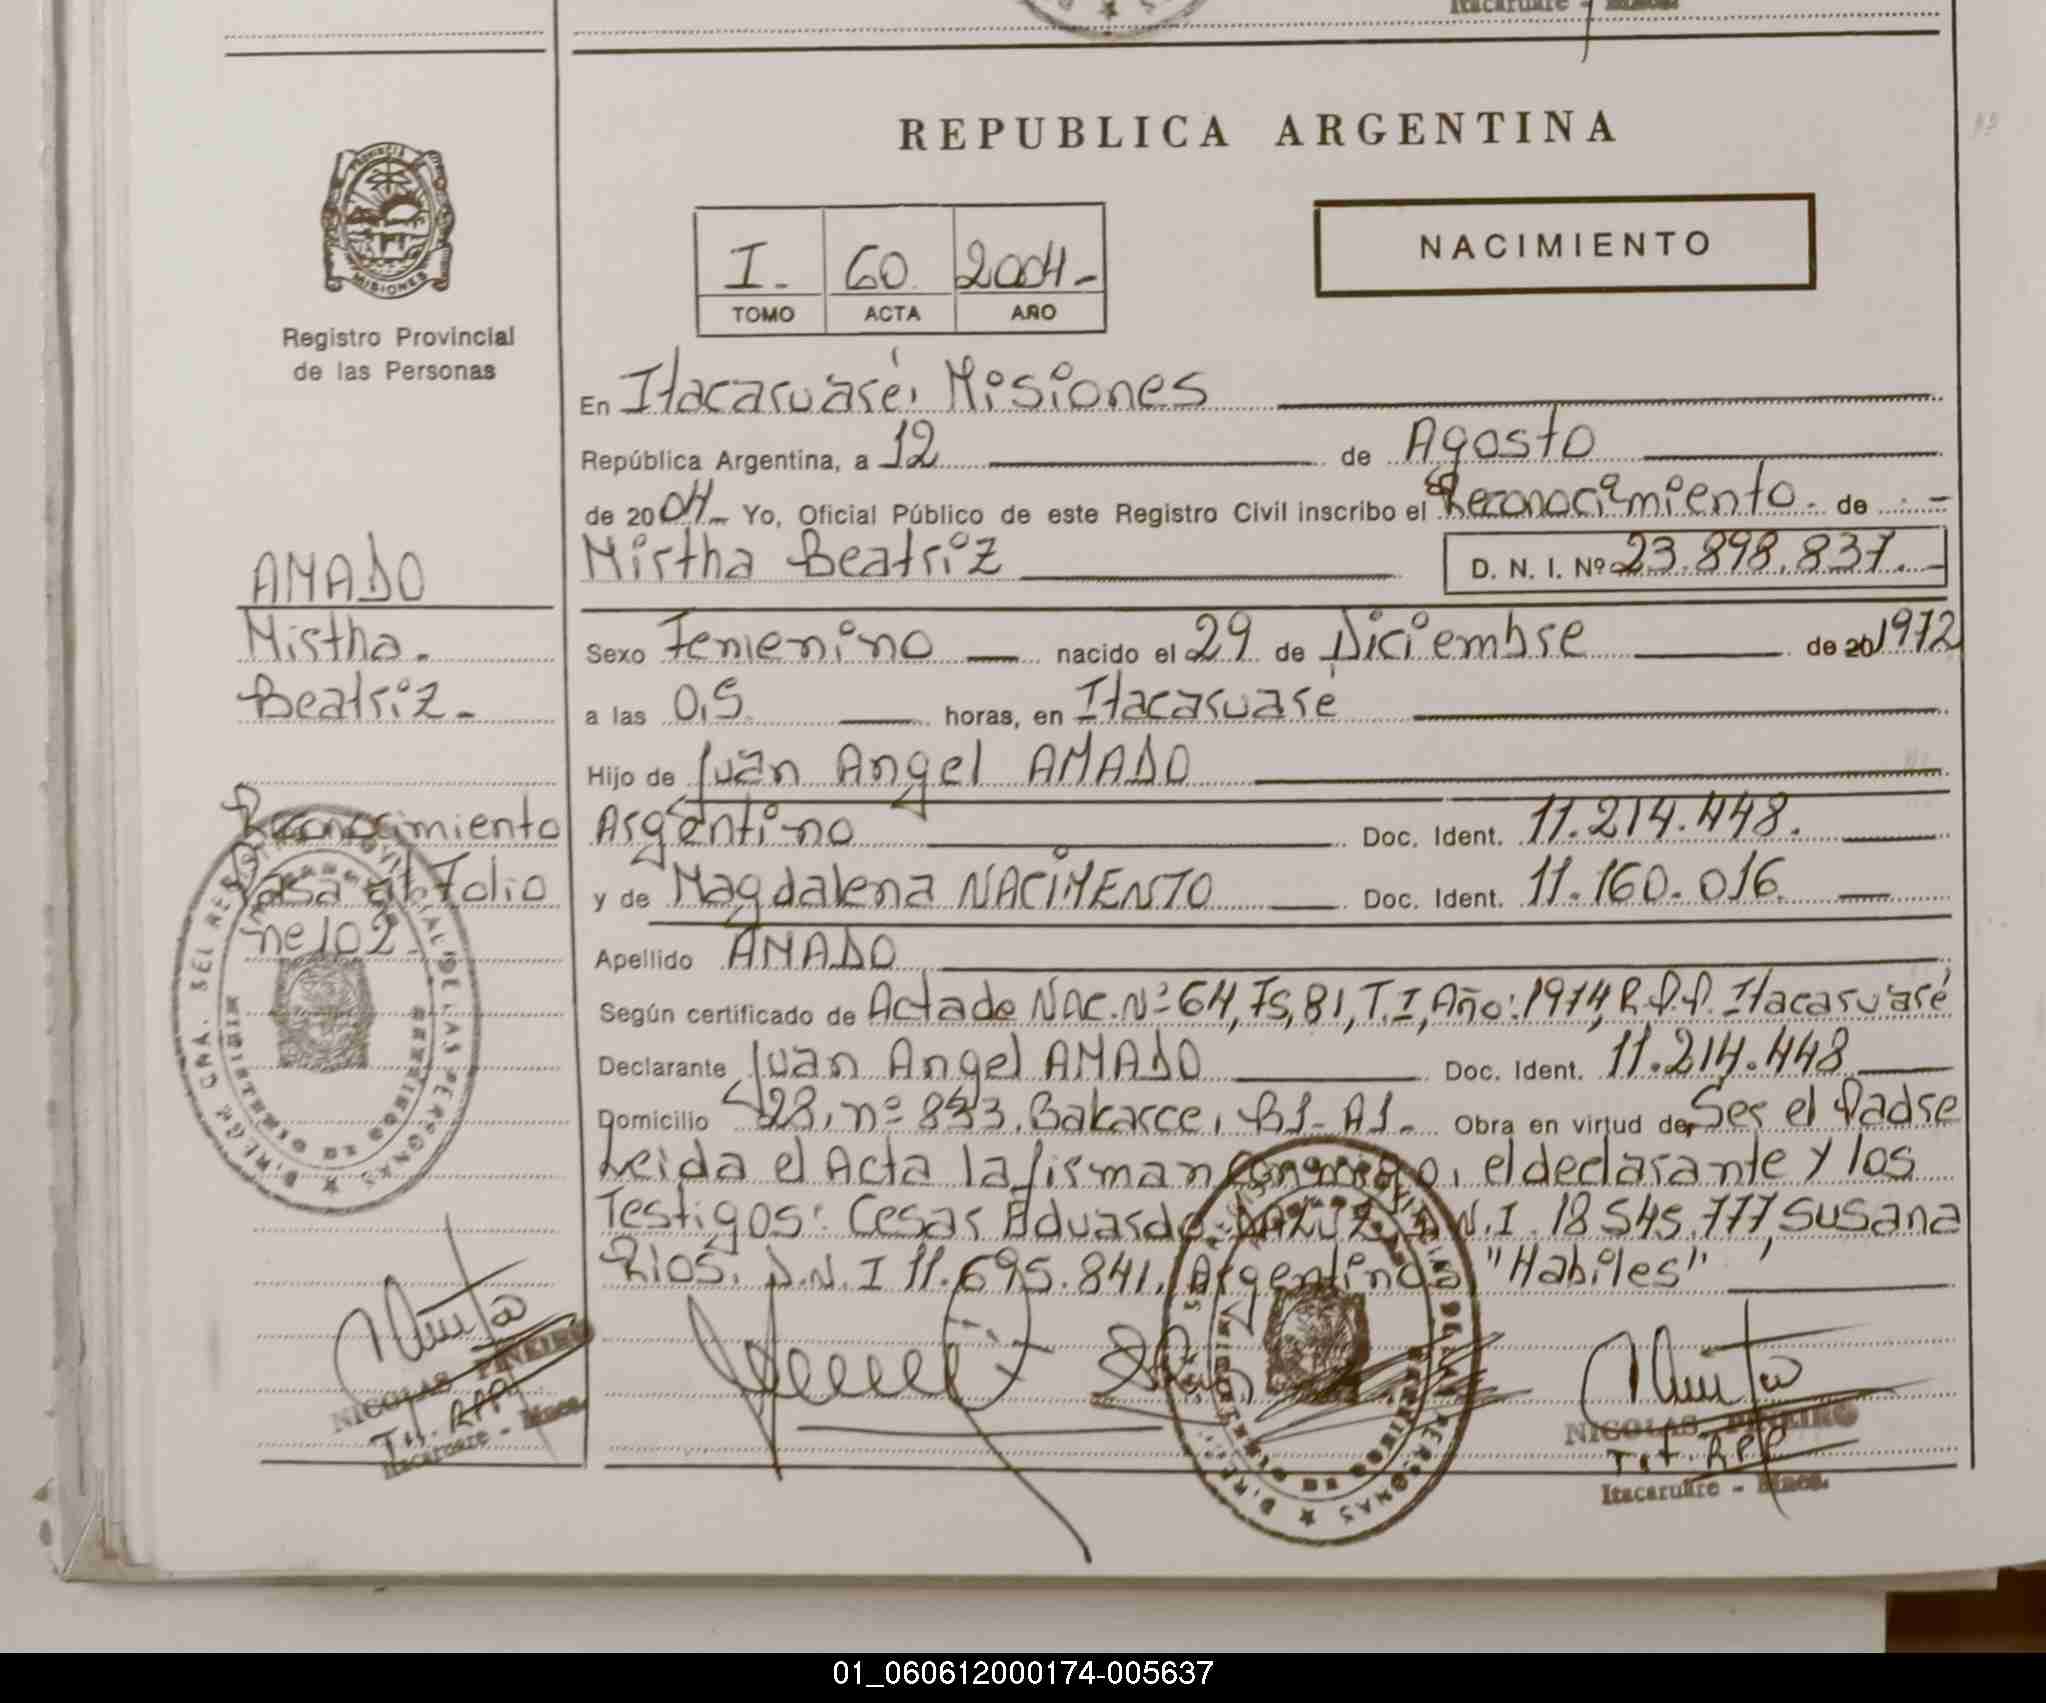 Itacaruare - Mnes.
REPUBLICA ARGENTINA
PROVINCIA
MISIONES
Registro Provincial
de las Personas
I.
60
2004-
TOMO
ACTA
AÑO
NACIMIENTO
En Itacaruaré, Misiones
República Argentina, a 12 de Agosto
de 2004- Yo, Oficial Público de este Registro Civil inscribo el Reconocimiento. de
Mirtha Beatriz D. N. I. Nº 23.898.837.-
AMADO
Mirtha.
Beatriz.-
Sexo Femenino nacido el 29 de Diciembre de 20 1972
a las 0,5 horas, en Itacaruaré
Hijo de Juan Angel AMADO
Argentino Doc. Ident. 11.214.448.
y de Magdalena NACIMENTO Doc. Ident. 11.160.016
Apellido AMADO
Reconocimiento
Pasa al Folio
nº 102.
Según certificado de Acta de NAC. Nº 64, Fs, 81, T. I, Año: 1974, R.P.P. Itacaruaré
Declarante Juan Angel AMADO Doc. Ident. 11.214.448
Domicilio 28, nº 833, Balcarce, Bs-As.- Obra en virtud de Ser el Padre
Leida el Acta la firman conmigo, el declarante y los
Testigos: Cesar Eduardo D.N.I. 18.545.777, Susana
Rios. D.N.I 11.695.841, Argentinos "Habiles"
NICOLAS PINEIRO
Tit. RPP
Itacaruare - Mnes.
NICOLAS PINEIRO
Tit. RPP
Itacaruare - Mnes.
01_060612000174-005637